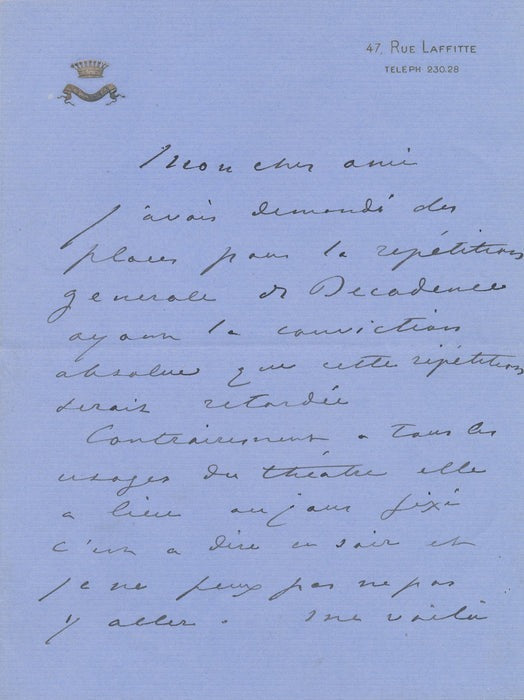 47, RUE LAFFITTE
TELEPH 230.28
Mon cher ami
J'avais demandé des
places pour la répétition
generale de Decadence
ayant la conviction
absolue que cette répétition
serait retardée
Contrairement a tous les
usages du théatre elle
a lieu au jour fixé
c'est a dire ce soir et
je ne peux pas ne pas
y aller. Me voilà